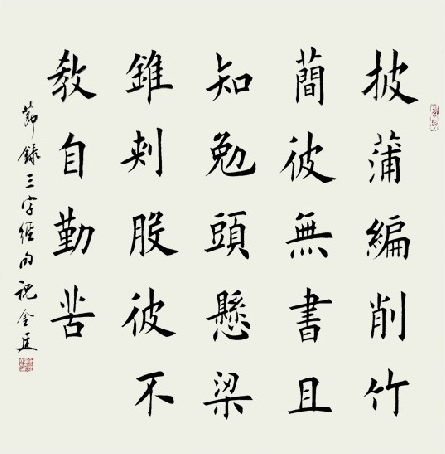 披蒲編削竹
蕳彼無書且
知勉頭懸梁
錐刺股彼不
教自勤苦
節錄三字經內